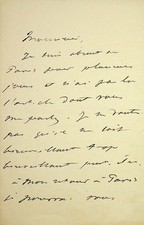 Monsieur,
Je suis absent de
Paris pour plusieurs
jours et n'ai pas lu
l'art. dont vous
me parlez. Je ne doute
pas qu'il ne soit
bienveillant trop
bienveillant peut-être
à mon retour à Paris
si pourrai vous